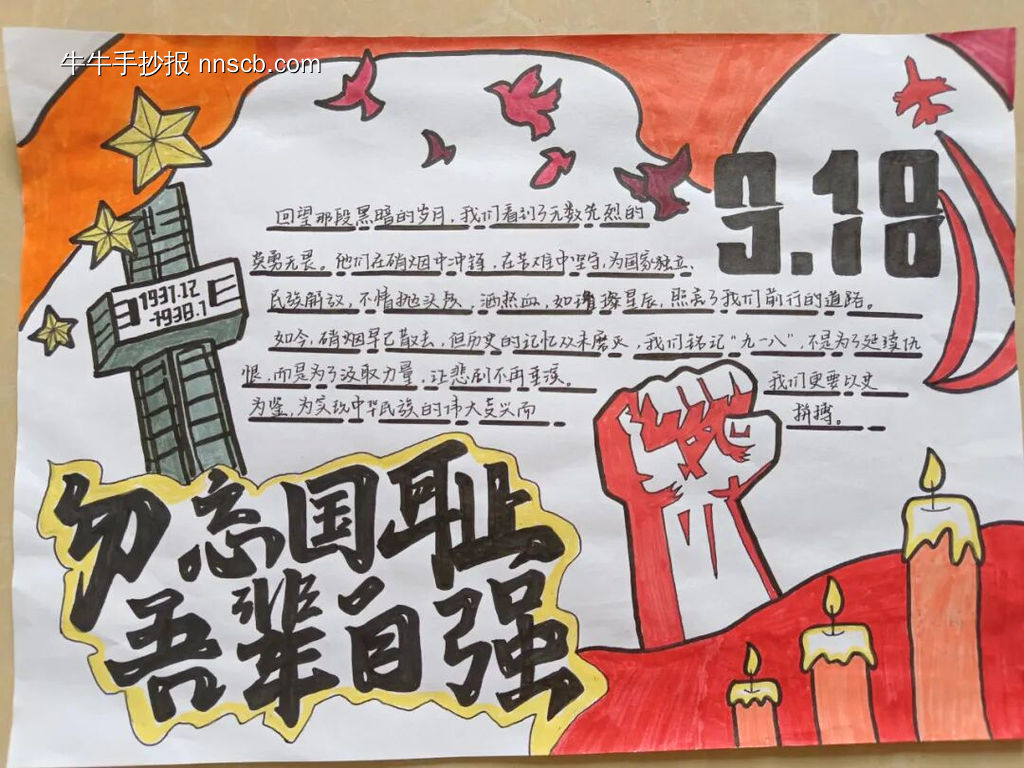 牛牛手抄报 nnscb.com
9.18
1937.12
-1938.1
回望那段黑暗的岁月，我们看到了无数先烈的
英勇无畏。他们在硝烟中冲锋，在苦难中坚守，为国家独立、
民族解放，不惜抛头颅，洒热血，如璀璨星辰，照亮了我们前行的道路。
如今，硝烟早已散去，但历史的记忆从未磨灭，我们铭记“九一八”，不是为了延续仇
恨，而是为了汲取力量，让悲剧不再重演。 我们更要以史
为鉴，为实现中华民族的伟大复兴而 拼搏。
勿忘国耻
吾辈自强